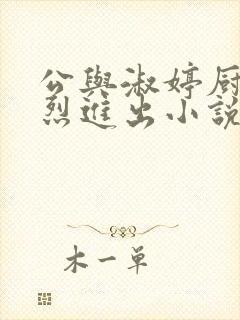 公與淑婷厨
烈進出小說
木一单